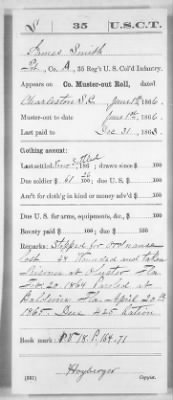 S 35 U.S.C.T.
James Smith
Pt., Co. A, 35 Reg't U. S. Col'd Infantry.
Appears on Co. Muster-out Roll, dated
Charleston S.C. June 1st, 1866.
Muster-out to date June 1st, 1866.
Last paid to Dec 31, 1863.
Clothing account:
Last settled , 186 ; drawn since $ 100
Due soldier $ 61 100; due U. S. $ 100
Am't for cloth'g in kind or money adv'd $ 100
Due U. S. for arms, equipments, &c., $ 100
Bounty paid $ 100; due $ 100
Remarks: Stopped for Ordnance
lost. Wounded and taken
Prisoner at Olustee Fla
Feb. 20. 1864 Paroled at
Baldwin Fla April 20th
1865. Due ration
Book mark: R. & P. 164.71
Heyberger
(361) Copyist.